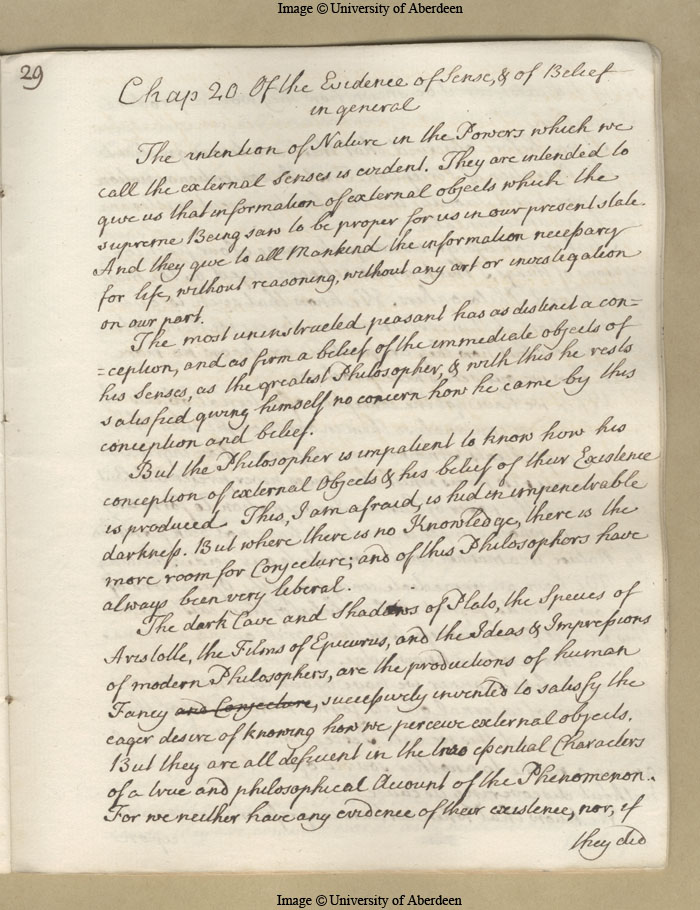 Image © University of Aberdeen
29
Chap 20 Of the Evidence of Sense, & of Belief
in general
The intention of Nature in the Powers which we
call the external Senses is evident. They are intended to
give us that information of external objects which the
supreme Being saw to be proper for us in our present state.
And they give to all Mankind the information necessary
for life, without reasoning, without any art or investigation
on our part.
The most uninstructed peasant has as distinct a con=
=ception, and as firm a belief of the immediate objects of
his Senses, as the greatest Philosopher, & with this he rests
satisfied giving himself no concern how he came by this
conception and belief.
But the Philosopher is impatient to know how his
conception of external Objects & his belief of their Existence
is produced. This, I am afraid, is hid in impenetrable
darkness. But where there is no Knowledge, there is the
more room for Conjecture; and of this Philosophers have
always been very liberal.
The dark Cave and Shadows of Plato, the Species of
Aristotle, the Films of Epicurus, and the Ideas & Impressions
of modern Philosophers, are the productions of human
Fancy and Conjecture, successively invented to satisfy the
eager desire of knowing how we perceive external objects.
But they are all deficient in the two essential Characters
of a true and philosophical Account of the Phenomenon.
For we neither have any evidence of their existence, nor, if
they did
Image © University of Aberdeen